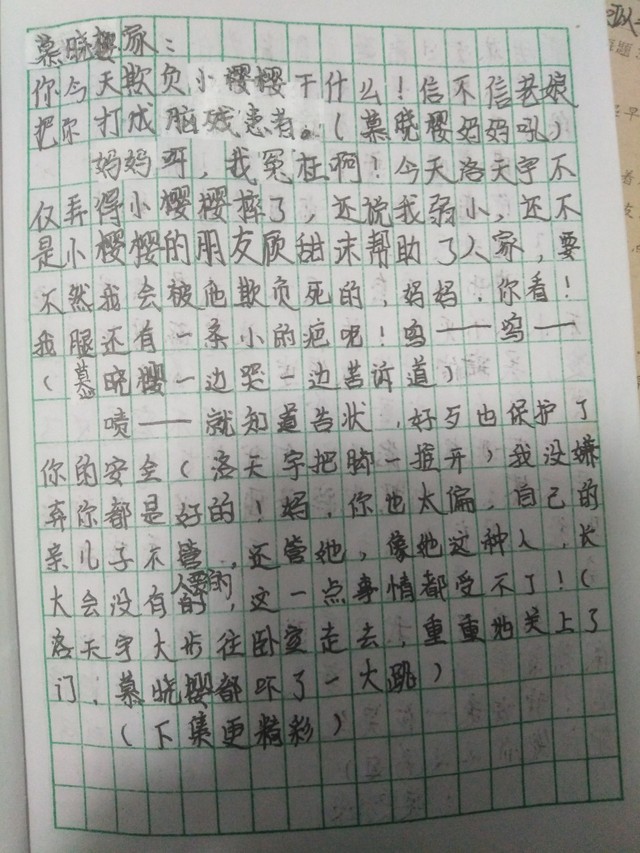 慕晓樱家：
你今天欺负小樱樱干什么！信不信老娘
把你打成脑残患者。（慕晓樱妈妈吼）
妈妈呀，我冤枉啊！今天洛天宇不
仅弄得小樱樱摔了，还说我弱小，还不
是小樱樱的朋友顾甜沫帮助了人家，要
不然我会被他欺负死的，妈妈，你看！
我腿还有一条小的疤呢！呜——呜——
（慕晓樱一边哭一边苦诉道）
啧——就知道告状，好歹也保护了
你的安全（洛天宇把脚一推开）我没嫌
弃你都是好的！妈，你也太偏，自己的
亲儿子不管，还管她，像她这种人，长
大会没有人要的的，这一点事情都受不了！（
洛天宇大步往卧室走去，重重地关上了
门，慕晓樱都吓了一大跳）
（下集更精彩）